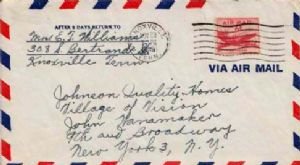 AFTER 5 DAYS RETURN TO
Mrs E. T. Williams
308 S. Bertrand St
Knoxville Tenn
KNOXVILLE
TENN
VIA AIR MAIL
Johnson Quality Homes
Village of Vision
John Wanamaker
9th and Broadway
New York 3, N. Y.